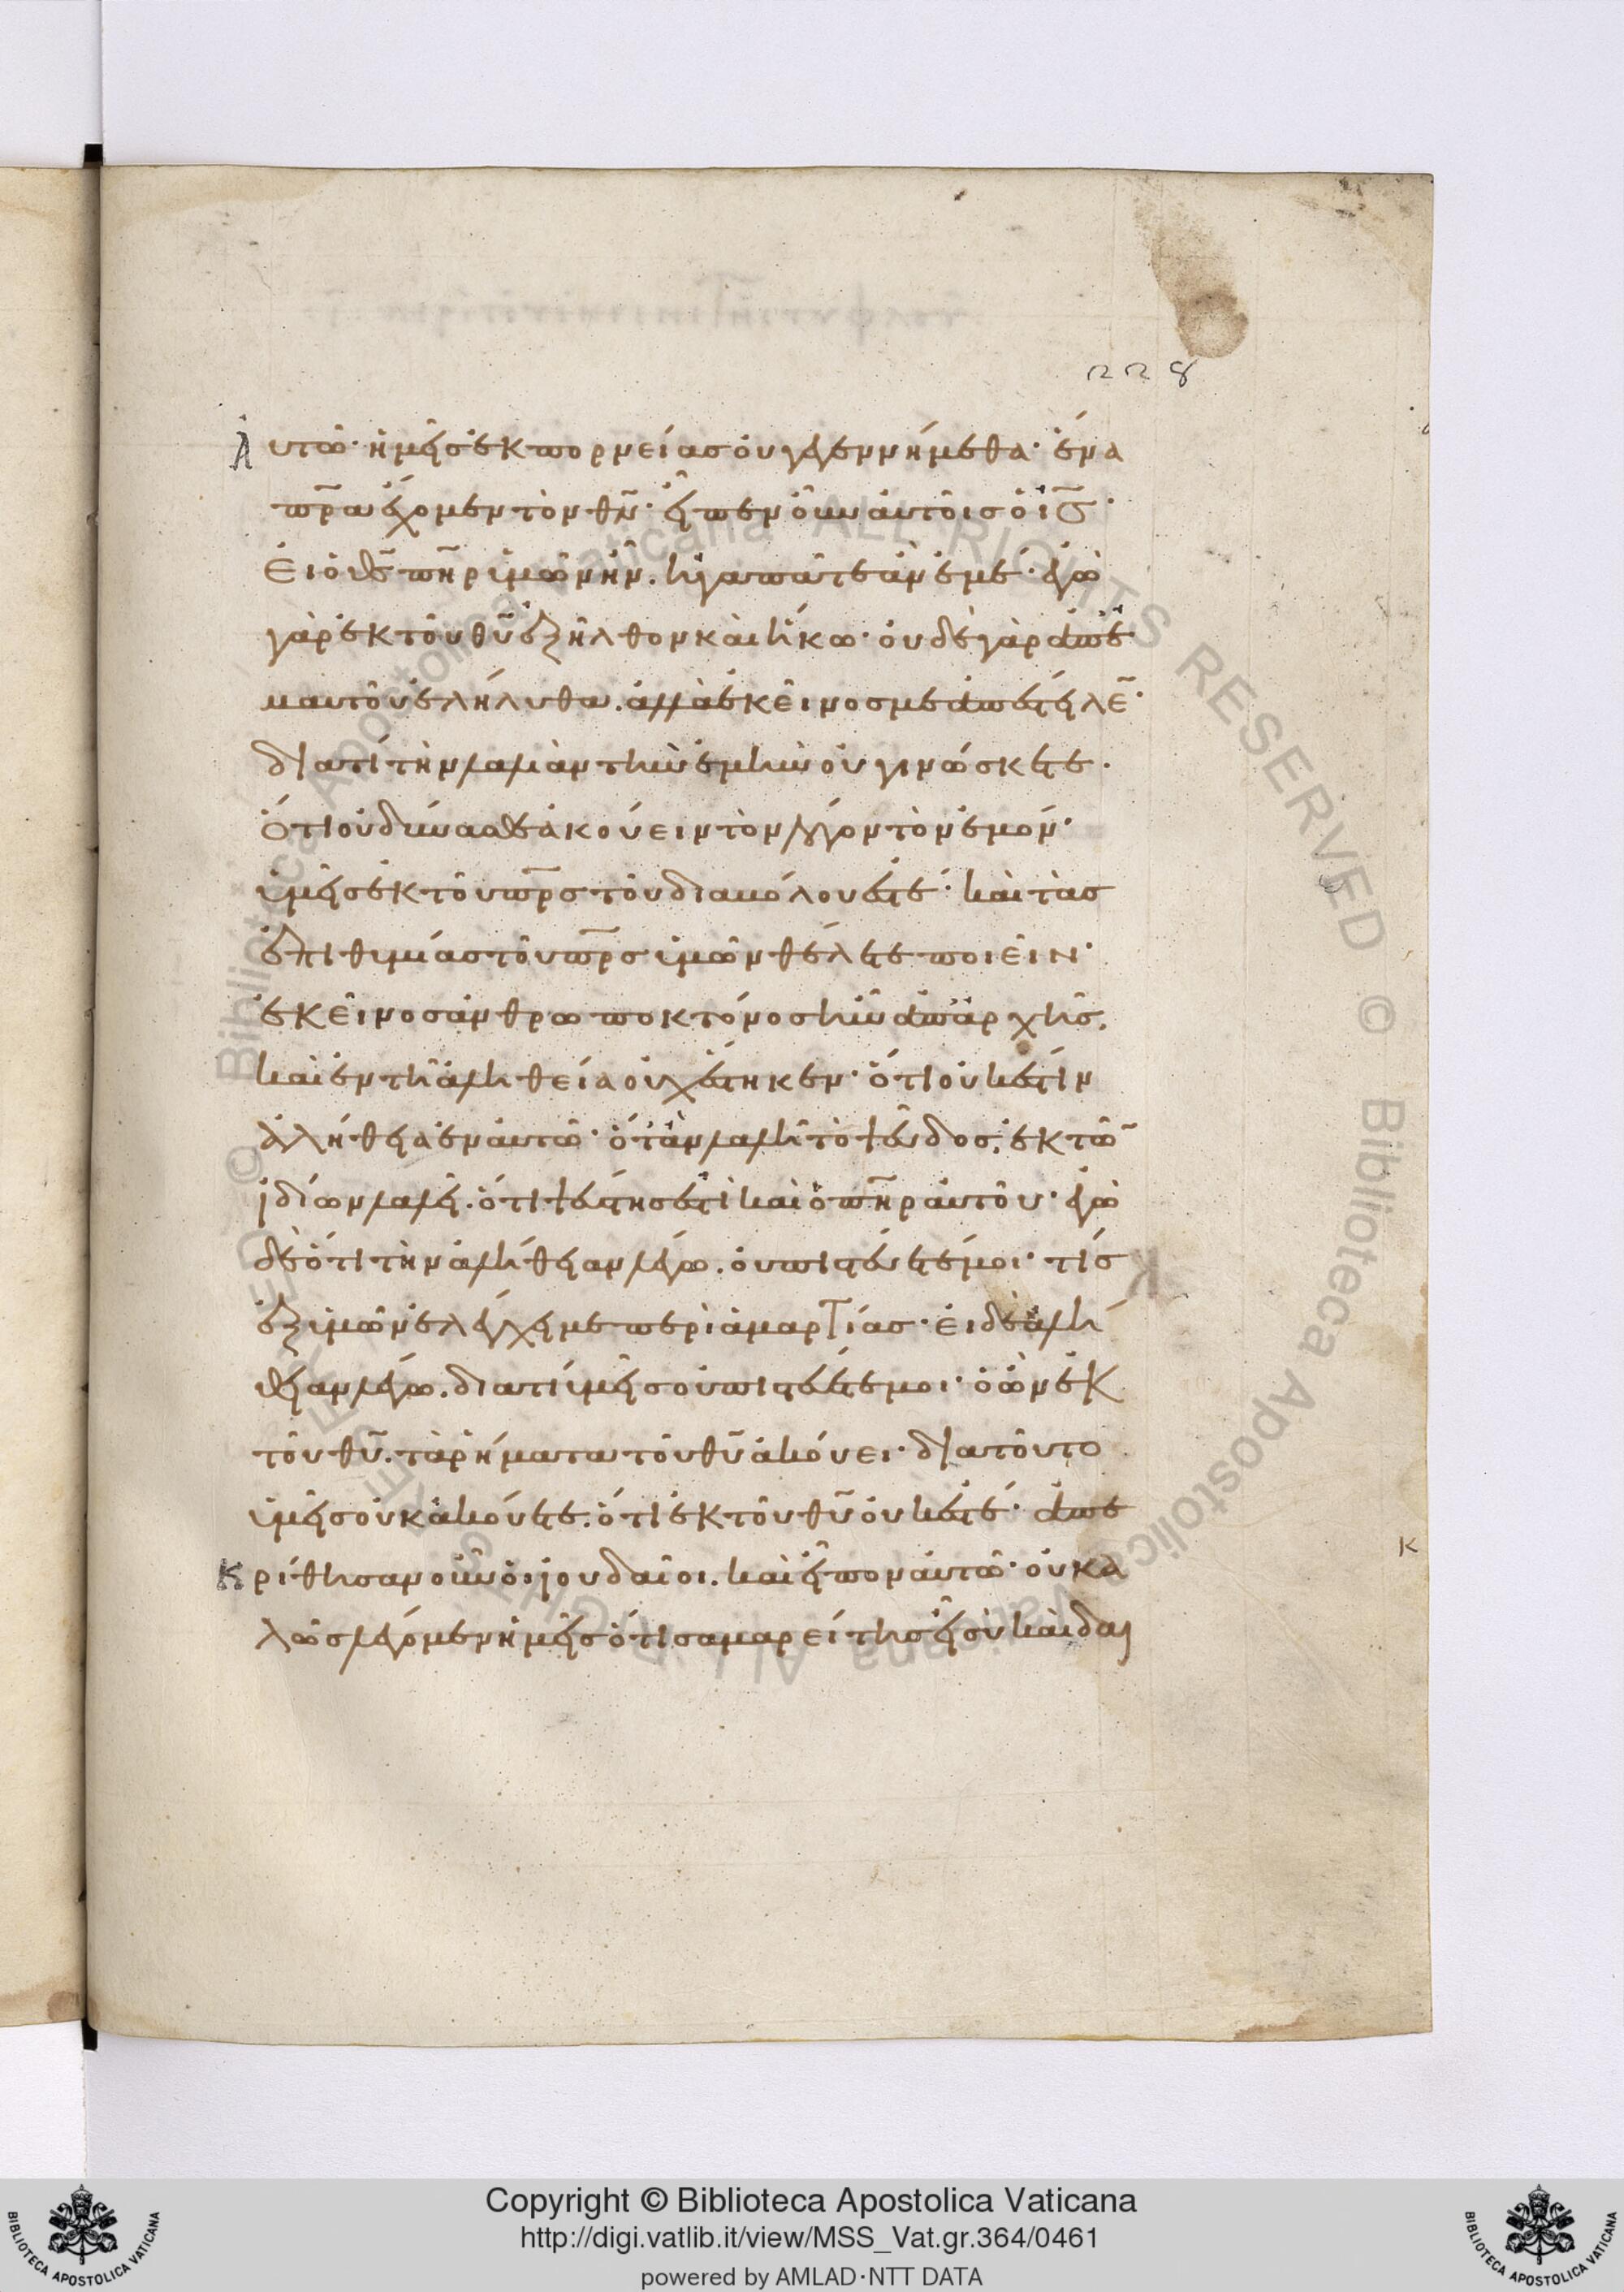 228
αυτῶ· ἡμεῖς ἐκ πορνείας οὐ γεγεννήμεθα· ἕνα
πρ̅α ἔχομεν τὸν θν̅· εἶπεν οὖν αὐτοῖς ὁ ις̅·
Εἰ ὁ θς̅ πη̅ρ ὑμῶν ἦν. ἠγαπᾶτε ἂν ἐμέ· ἐγὼ
γὰρ ἐκ τοῦ θυ̅ ἐξῆλθον καὶ ἥκω· οὐδὲ γὰρ ἀπ' ἐ
μαυτοῦ ἐλήλυθα. ἀλλὰ ἐκεῖνος με ἀπέστειλε̅·
διατί τὴν λαλιὰν τὴν ἐμὴν οὐ γινώσκετε·
ὅτι οὐ δύνασθε ἀκούειν τὸν λόγον τὸν ἐμόν·
ὑμεῖς ἐκ τοῦ πρ̅ς τοῦ διαβόλου ἐστέ· καὶ τὰς
ἐπιθυμίας τοῦ πρ̅ς ὑμῶν θέλετε ποιεῖν·
ἐκεῖνος ἀνθρωποκτόνος ἦν ἀπ' ἀρχῆς.
καὶ ἐν τῆ ἀληθεία οὐχ ἕστηκεν· ὅτι οὐκ ἔστιν
ἀλήθεια ἐν αὐτῶ· ὅταν λαλῆ τὸ ψεῦδος, ἐκ τῶ̅
ἰδίων λαλεῖ. ὅτι ψεύστης ἐστὶ καὶ ὁ πη̅ρ αὐτοῦ· ἐγὼ
δὲ ὅτι τὴν ἀλήθειαν λέγω. οὐ πιστεύετέ μοι· τίς
ἐξ ὑμῶν ἐλέγχει με περὶ ἁμαρτίας· εἰ δὲ ἀλή
θειαν λέγω. διατί ὑμεῖς οὐ πιστεύετέ μοι· ὁ ὢν ἐκ
τοῦ θυ̅. τὰ ῥήματα τοῦ θυ̅ ἀκούει· διατοῦτο
ὑμεῖς οὐκ ἀκούετε. ὅτι ἐκ τοῦ θυ̅ οὐκ ἐστέ· ἀπε
κρίθησαν οὖν οἱ ἰουδαῖοι. καὶ εἶπον αὐτῶ· οὐ κα
λῶς λέγομεν ἡμεῖς ὅτι σαμαρείτης εἶ σὺ καὶ δαι
κ
© Biblioteca Apostolica Vaticana ALL RIGHTS RESERVED © Biblioteca Apostolica Vaticana ALL RIGHTS RESERVED
BIBLIOTECA APOSTOLICA VATICANA
Copyright © Biblioteca Apostolica Vaticana
http://digi.vatlib.it/view/MSS_Vat.gr.364/0461
powered by AMLAD·NTT DATA
BIBLIOTECA APOSTOLICA VATICANA